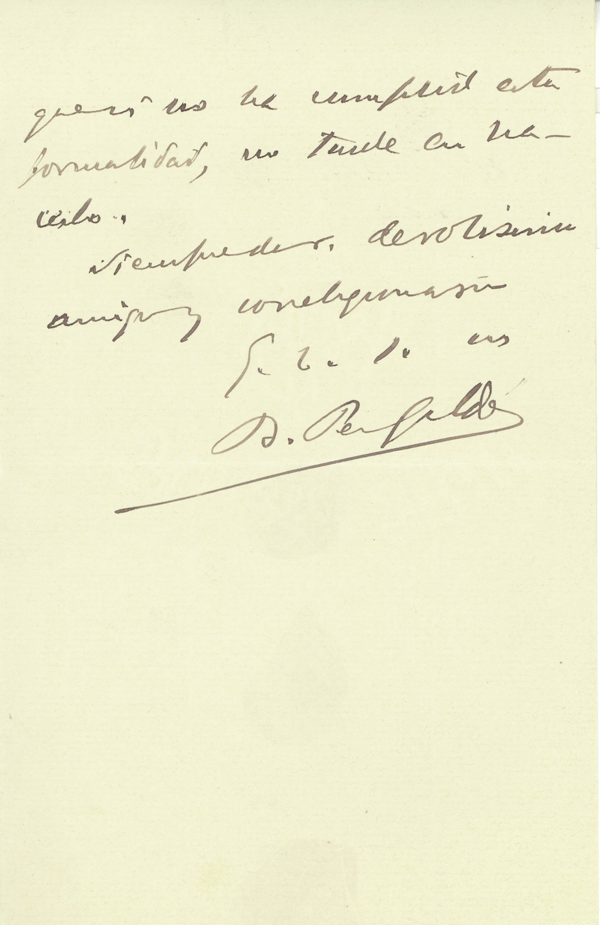 que si no ha cumplido esta
formalidad, no tarde en ha-
cerlo.
Siempre de V. devotísimo
amigo y correligionario
q. b. s. m
B. Pérez Galdós